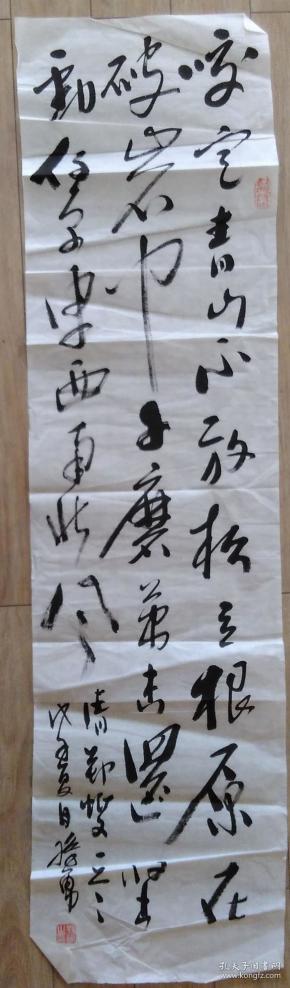 咬定青山不放松立根原在
破岩中千磨萬击還坚
勁任尔东西南北风
清郑燮
夏日
孔夫子旧书网